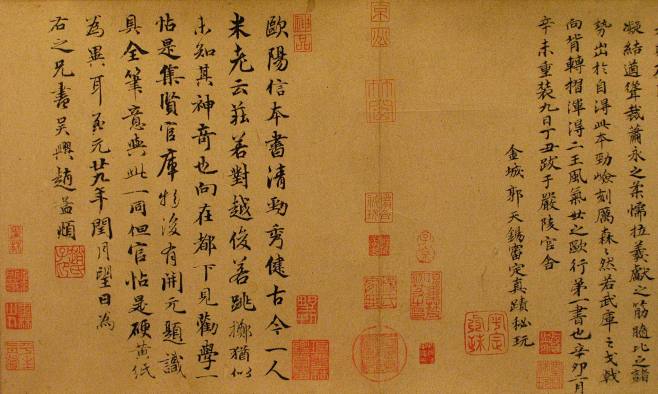 凝結遒聳裁蕭永之柔懦拉羲獻之筋髓比之諸
勢出於自得此本勁嶮刻厲森〻然若武庫之戈戟
向背轉摺渾得二王風氣世之歐行第一書也辛卯一月
辛未重裝九日丁丑跋于嚴陵官舍
金城郭天錫審定真蹟秘玩
神品
歐陽信本書清勁秀健古今一人
米老云莊若對越俊若跳擲猶似
未知其神奇也向在都下見勸學一
帖是集賢官庫物後有開元題識
具全筆意與此一同但官帖是硬黃紙
為異耳至元廿九年閏月望日為
右之兄書吳興趙孟頫